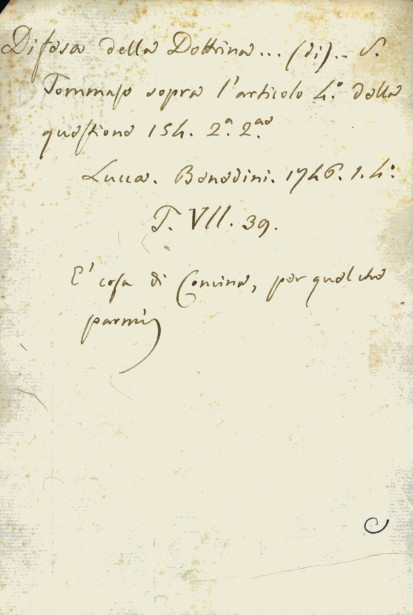 Difesa della Dottrina... (di).. S.
Tommaso sopra l'articolo 4.º della
questione 154. 2.ª 2.ae
Lucca. Benedini. 1746. 1. 4:
T. VII. 39.
E' cosa di Concina, per quel che
parmi